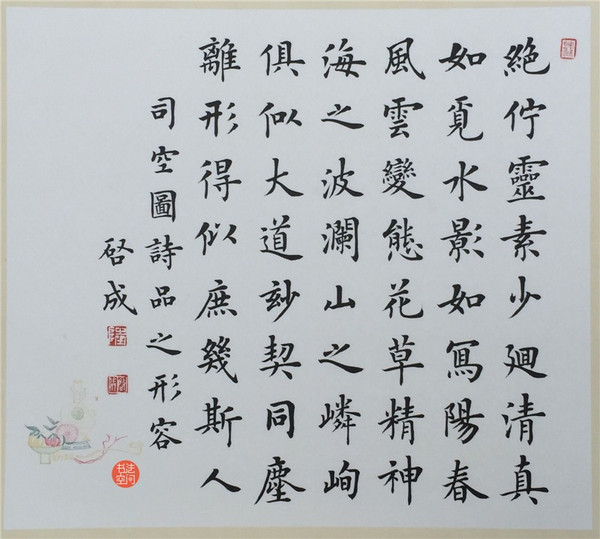 絶佇靈素少廻清真
如覓水影如寫陽春
風雲變態花草精神
海之波瀾山之嶙峋
俱似大道玅契同塵
離形得似庶幾斯人
司空圖詩品之形容
啓成